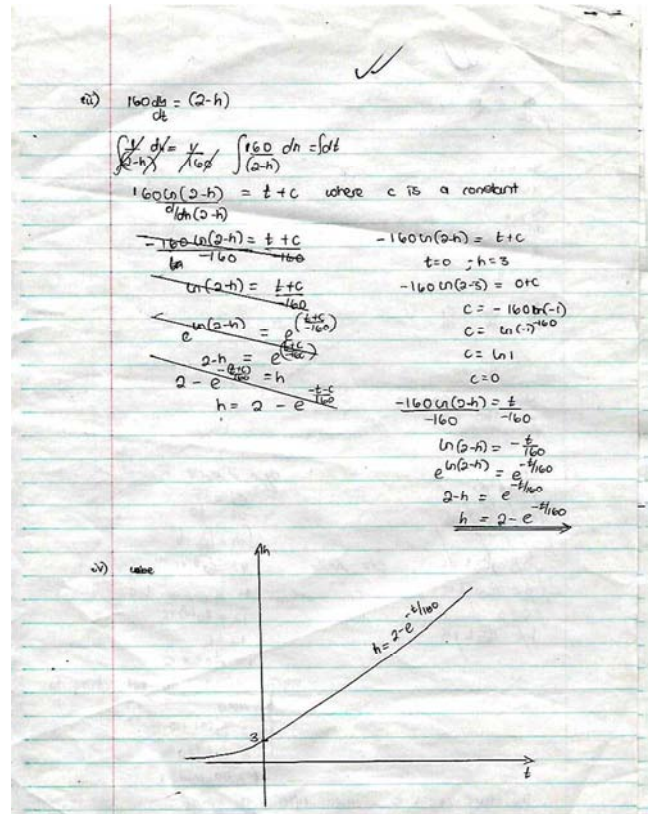 iii) 160 dh/dt = (2-h)
∫ 1/(2-h) dh = 1/160 ∫ 160/(2-h) dh = ∫dt
160 ln(2-h) / d/dh(2-h) = t + c where c is a constant
-160 ln(2-h)/-160 = t + c/-160
ln(2-h) = t+c/-160
e^ln(2-h) = e^(t+c/-160)
2-h = e^(t+c/-160)
2 - e^-(t+c)/160 = h
h = 2 - e^-t-c/160
-160 ln(2-h) = t+c
t=0 ; h=3
-160 ln(2-3) = 0+c
c = -160 ln(-1)
c = ln(-1)^-160
c = ln 1
c = 0
-160 ln(2-h)/-160 = t/-160
ln(2-h) = -t/160
e^ln(2-h) = e^-t/160
2-h = e^-t/160
h = 2 - e^-t/160
iv)
h
h = 2-e^-t/160
3
t